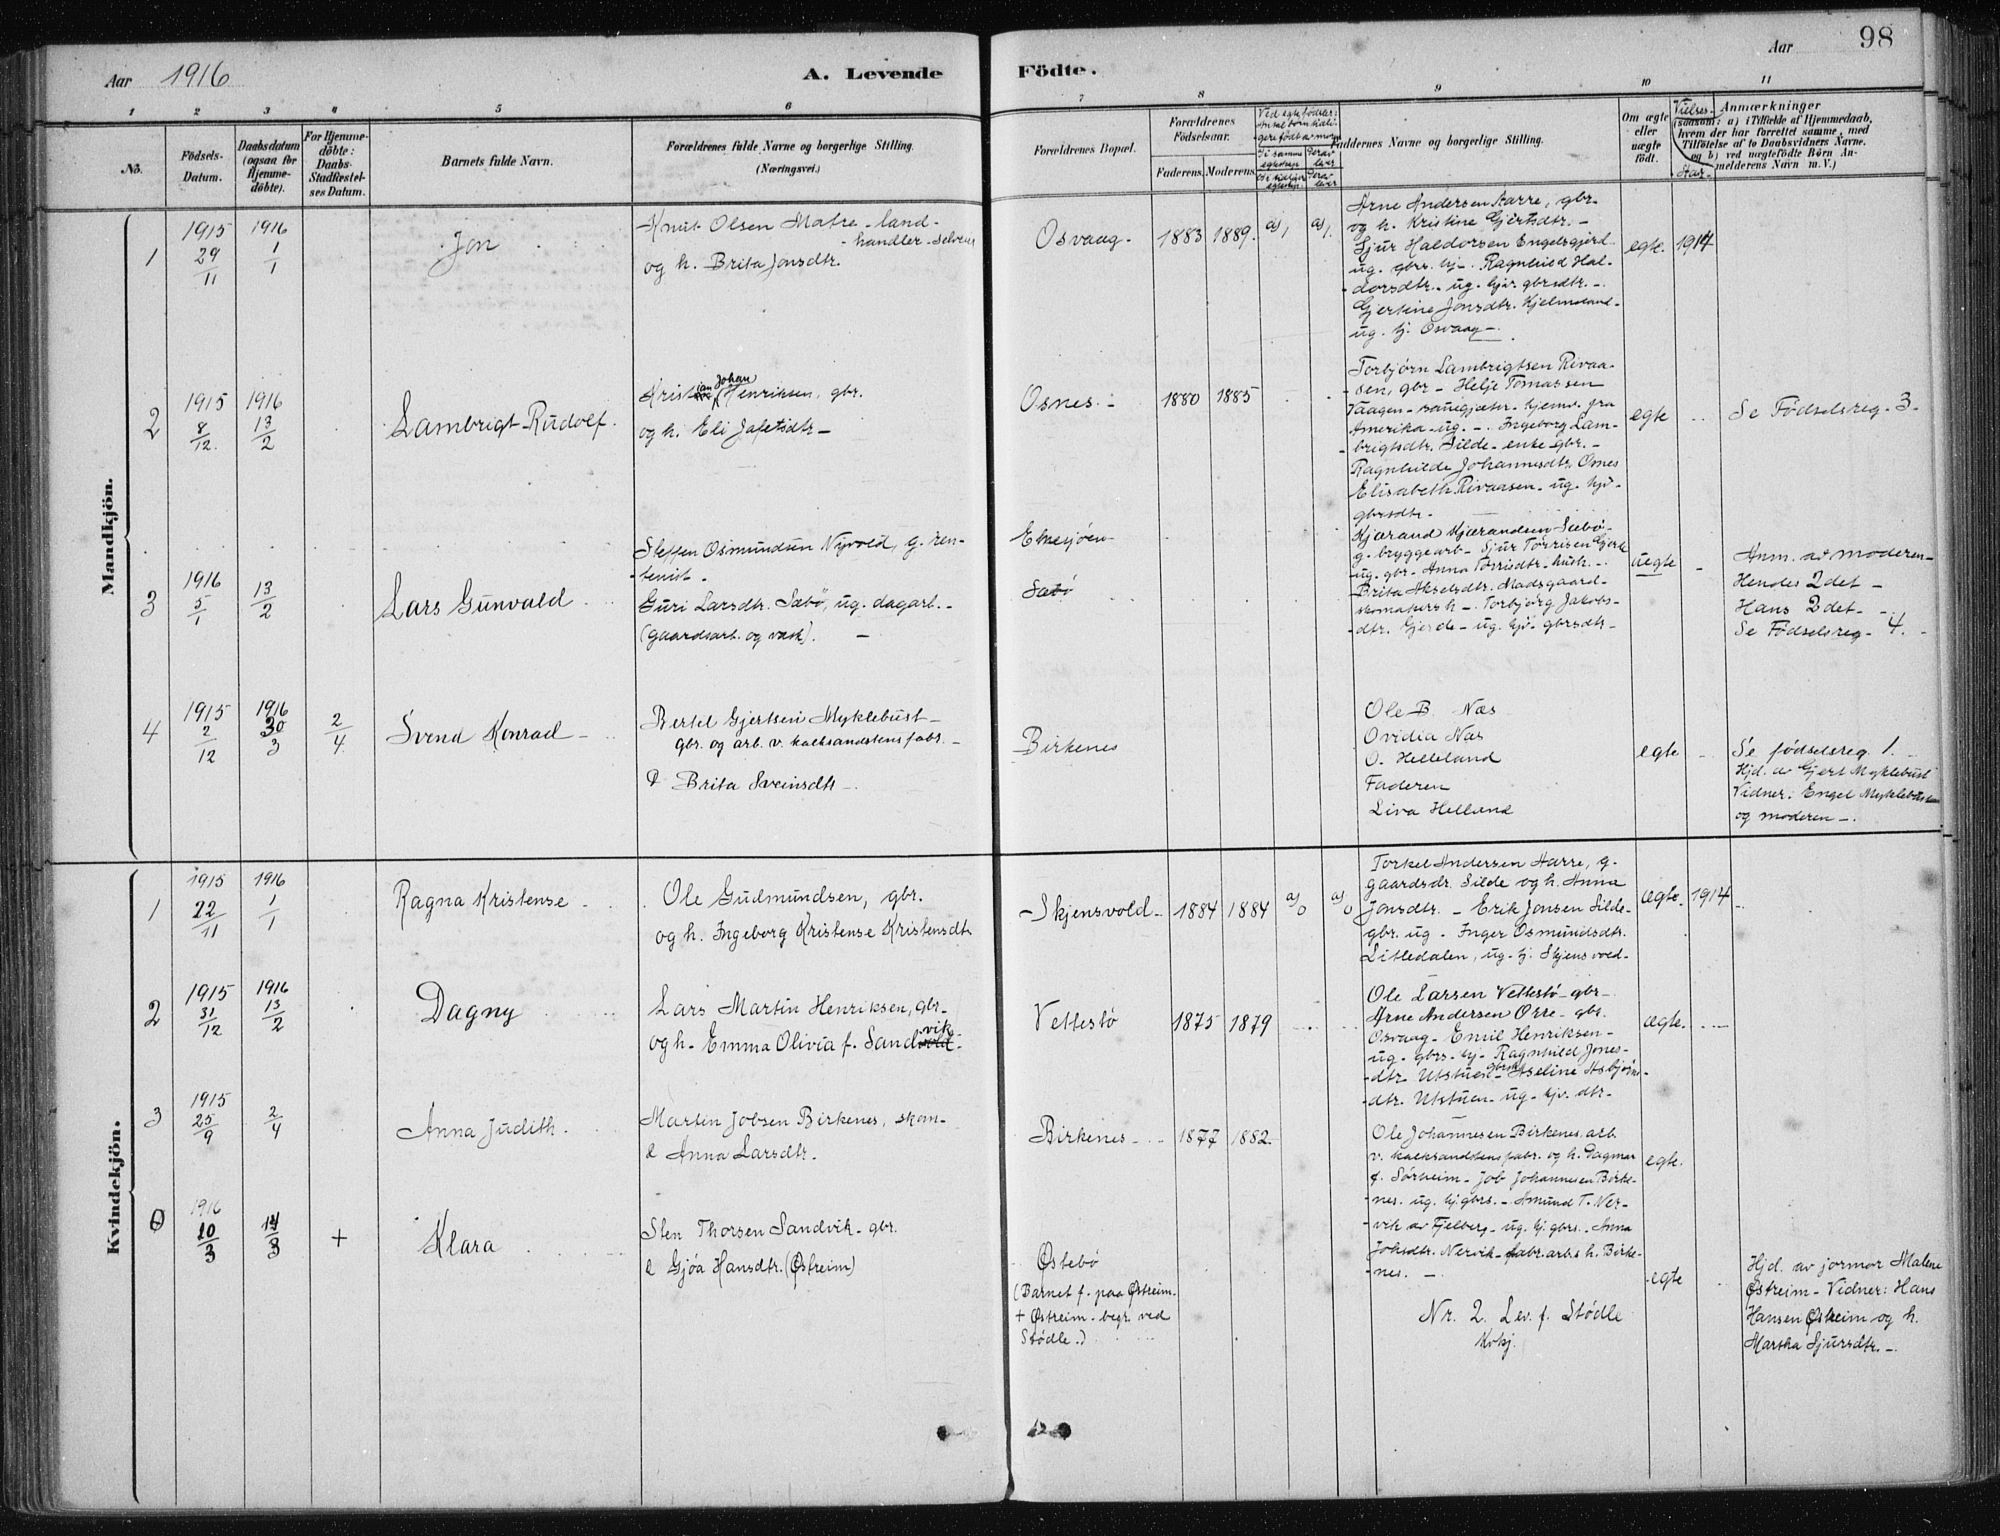 98
Aar 1916
A. Levende
Födte.
Aar
1
2
3
4
5
6
7
8
9
10
11
No.
Födsels-
Datum.
Daabsdatum
(ogsaa for
Hjemme-
döbte).
For Hjemme-
döbte:
Daabs-
Stadfæstel-
ses Datum.
Barnets fulde Navn.
Forældrenes fulde Navne og borgerlige Stilling.
(Næringsvei.)
Forældrenes Bopæl.
Forældrenes
Födselsaar.
Faderens.
Moderens.
Faddernes Navne og borgerlige Stilling.
Om ægte
eller
uægte
födt.
Vielses-
Aar
Anmærkninger
(saasom: a) i Tilfælde af Hjemmedaab,
hvem der har forrettet samme, med
Tilföielse af to Daabsvidners Navne,
og b) ved uægtefödte Börn An-
melderens Navn m. V.)
Mandkjön.
1
1915
29/11
1916
1/1
Jon
Knut Olsen Matre - land-
- handler - selveier
og h. Brita Jonsdtr.
Osvaag.
1883
1889.
Arne Andersen Aarre, gbr.
og h. Kristine Gjertsdtr. -
Sjur Haldorsen Engelsgjerd
ug. gbrs. hj. - Ragnhild Hal-
- dorsdtr. - ug. hjv. gbrsdtr. -
Gjertine Jonsdtr. Hjelmeland
ug. hj. Osvaag -
egte.
1914
2
1915
8/12.
1916
13/2
Lambrigt Rudolf.
Kristian Johan Henriksen, gbr.
og h. Eli Jafetsdtr -
Osnes. -
1880
1885
Torbjørn Lambrigtsen Rivaa-
- sen, gbr - Helje Tomassen
Vaagen - sauigjæter - hjemv. fra
Amerika - ug. - Ingeborg Lam-
- brigtsdtr. Silde - enke - gbr. -
Ragnhilde Johannesdtr. Osnes
Elisabeth Rivaasen - ug. hjv.
gbrsdtr. -
egte
Se Fødselsreg. 3.
3
1916
5/1
13/2
Lars Gunvald
Steffen Osmundsen Nyvold, g. ren-
- tenist -
Guri Larsdtr. Sæbö, ug. dagarb. -
(gaardsarb. og vask). -
Sæbö
Kjærand Kjærandsen Sæbö -
g. bryggearb - Sjur Torrisen Gjerde
ug. gbr - Anna Torrisdtr - hush. -
Brita Akselsdtr. Madsgaard -
skomakers h - Torbjørg Jakobs-
- dtr. Gjerde - ug. hjv. gbrsdtr -
uegte
Anm. av moderen -
Hendes 2det -
Hans 2det -
Se Fødselsreg - 4. -
4
1915
2/12
1916
30/3
2/4
Svend Konrad -
Bertel Gjertsen Myklebust -
gbr. og arb. v. kalksandstensfabr. -
& Brita Sveinsdtr -
Birkenes
Ole B Næs
Ovidia Næs
O. Helleland
Faderen
Liva Helland
egte
Se fødselsreg 1.
Hjd. av Gjert Myklebust
Vidner: Engel Myklebust
og moderen -.
Kvindekjön.
1
1915
22/11
1916
1/1
Ragna Kristense
Ole Gudmundsen, gbr.
og h. Ingeborg Kristense Kristensdt.
Skjensvold
1884
1884
Torkel Andersen Aarre, g.
gaardsdr. Silde og h. Anna
Jonsdtr. - Erik Jonsen Silde -
gbr. ug - Inger Osmundsdtr.
Litledalen, ug. hj. Skjensvold -
ægte.
1914
2
1915
31/12
1916
13/2
Dagny
Lars Martin Henriksen, gbr.
og h. Emma Olivia f. Sandvik
Vettestö
1875
1879
Ole Larsen Vettestö - gbr -
Arne Andersen Orre - gbr.
Osvaag - Emil Henriksen -
ug. gbrs. hj - Ragnhild Jones-
- dtr. Utstuen - Aseline Asbjørns-
- dtr. Utstuen - ug. hjv. dtr. -
ægte.
3
1915
25/9
2/4
Anna Judith.
Martin Jobsen Birkenes, skom -
& Anna Larsdtr.
Birkenes
1877
1882
Ole Johannesen Birkenes, arb.
v. kalksandstensfabr. og h. Dagmar
f. Sørheim - Job Johannesen Birke-
nes. ug. hj. gbrs. - Amund T. Ner-
- vik av Fjelberg - ug. hj. gbrs. - Anna
Johsdtr. Nervik - fabr. arbs h. Birke-
- nes. -
egte.
0
1916
10/3
14/3
+
Klara
Sten Thorsen Sandvik - gbr.
& Gjøa Hansdtr. (Østreim)
Østebö
(Barnet f. paa Østreim.
+ Østreim. begr. ved
Stødle.)
Nr. 2. Lev. f. Stødle
Kvkj.
egte
Hjd. av jormor Malene
Østreim - Vidner: Hans
Hansen Østreim og h.
Martha Sjursdtr. -